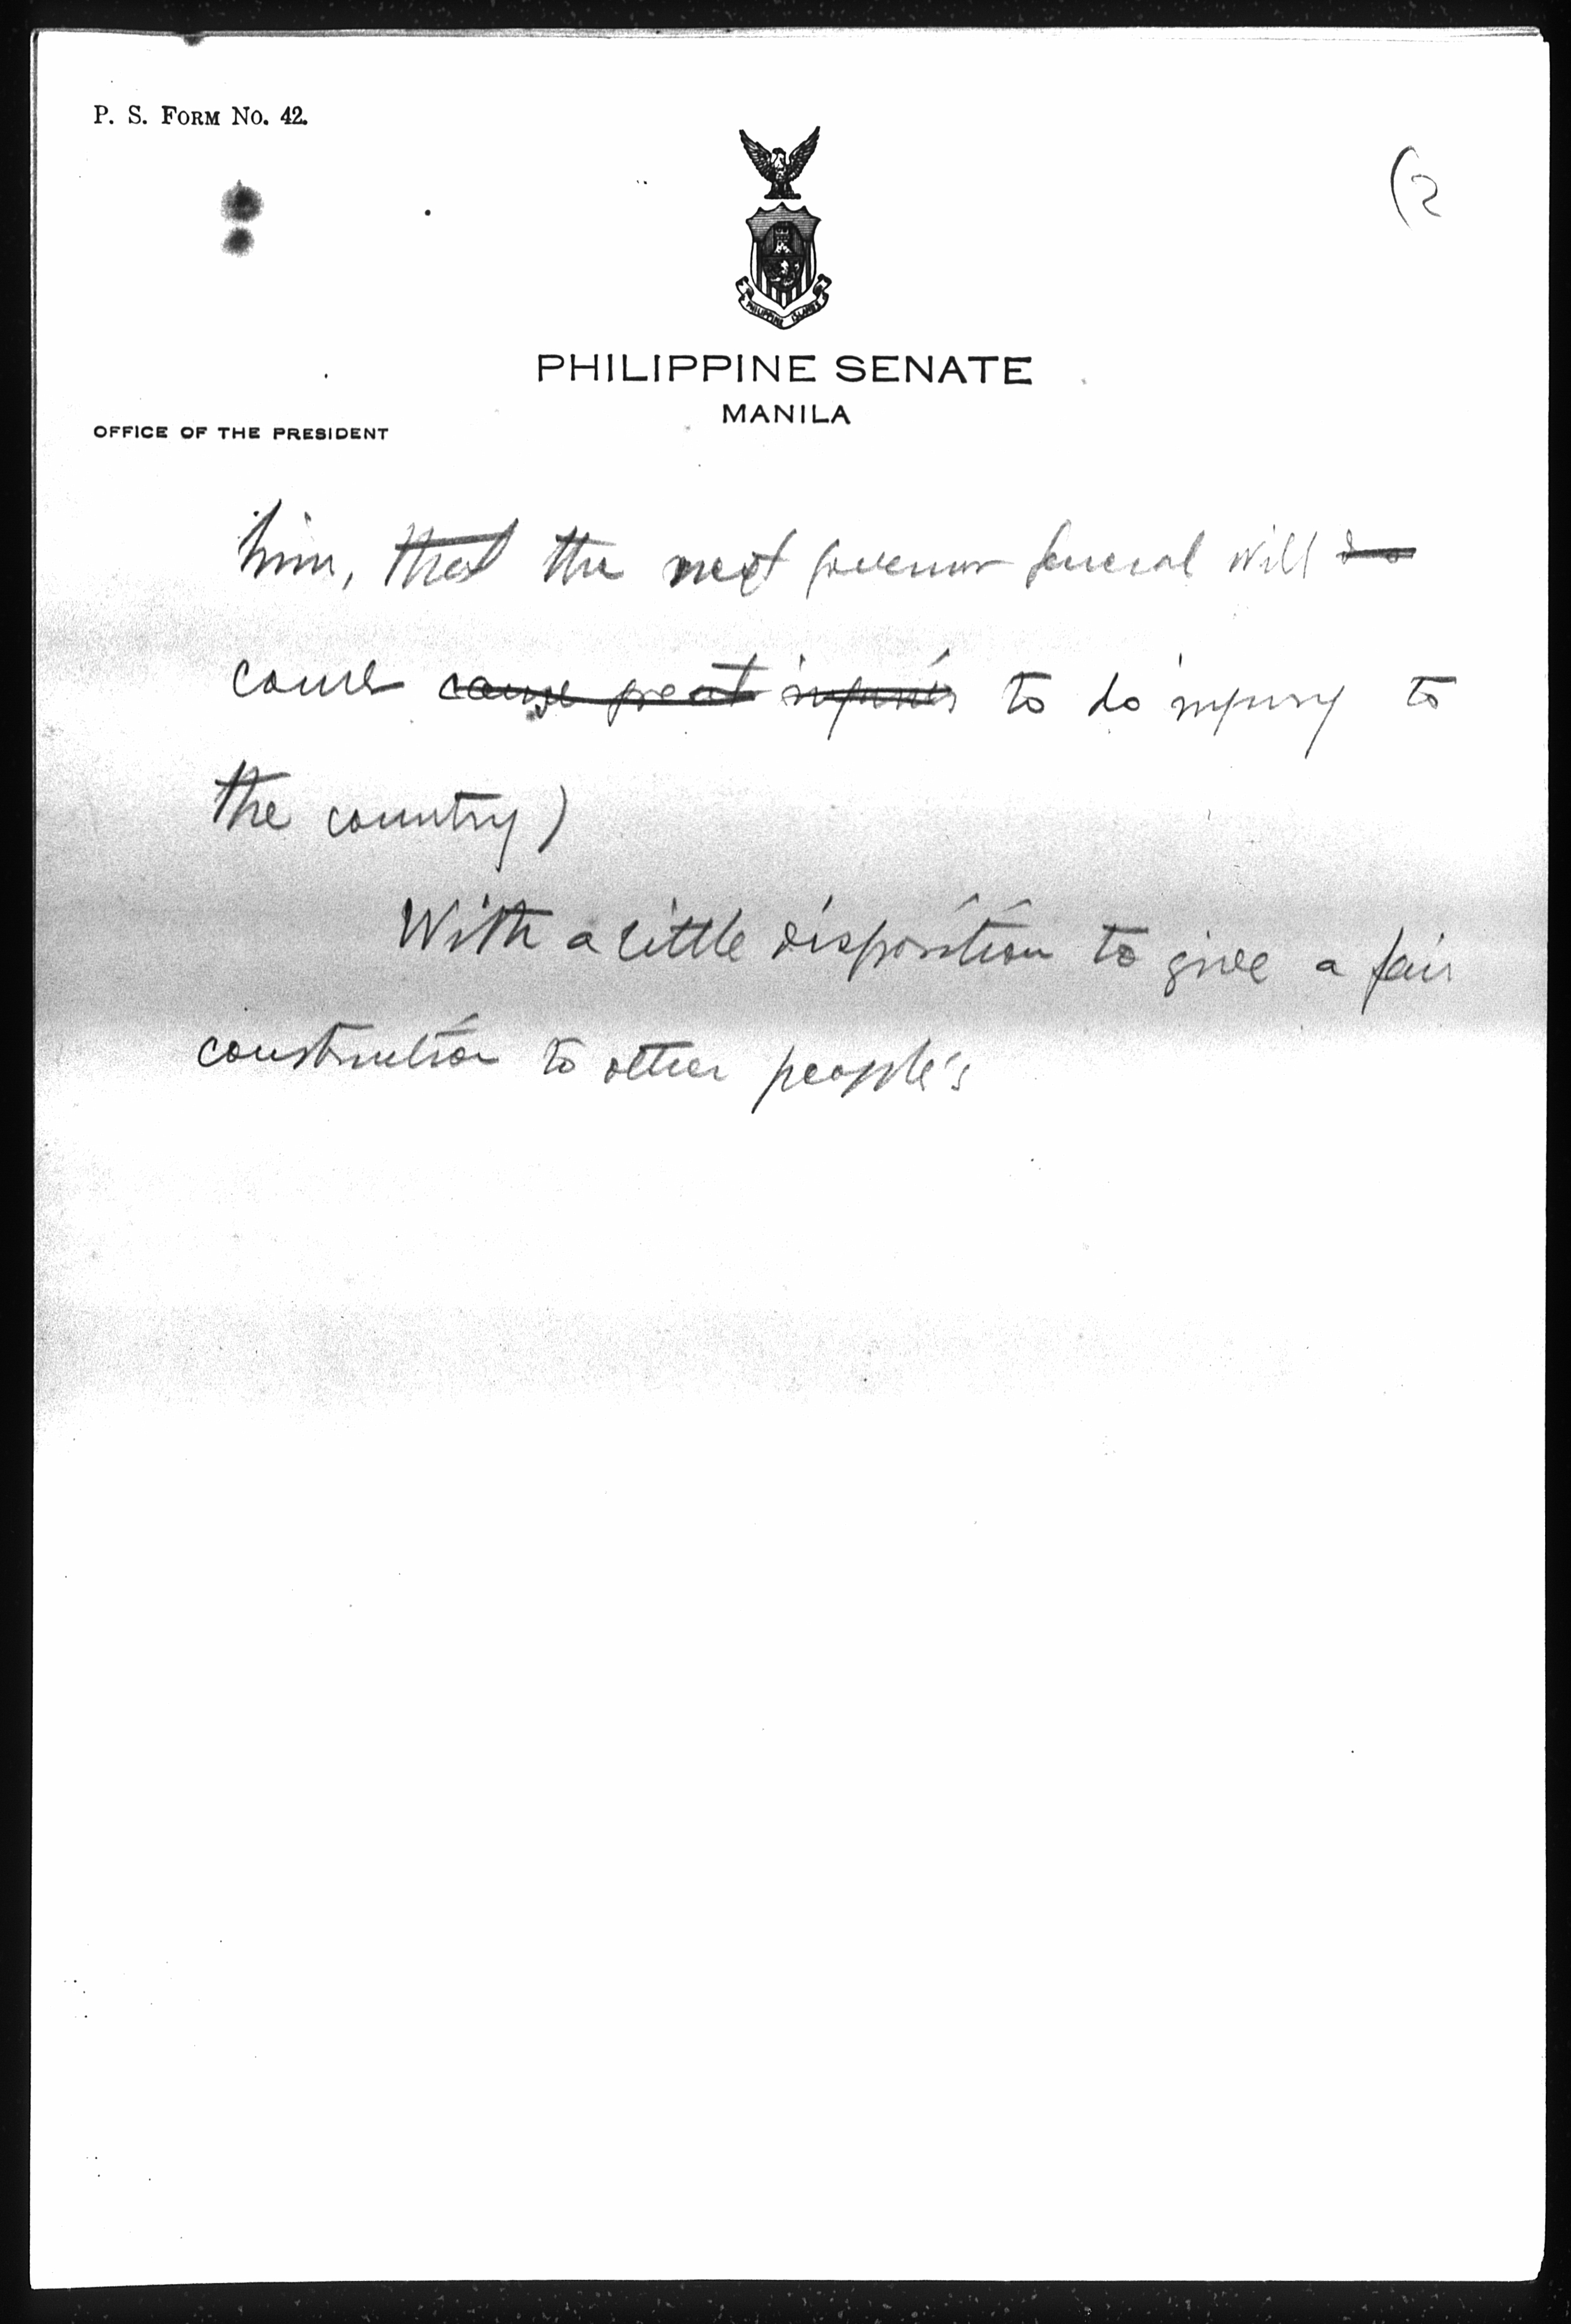 P. S. FORM NO. 42.
(2
PHILIPPINE ISLANDS
PHILIPPINE SENATE
MANILA
OFFICE OF THE PRESIDENT
him, that the next governor general will do
come cause great injuries to do injury to
the country)
With a little disposition to give a fair
construction to other people's